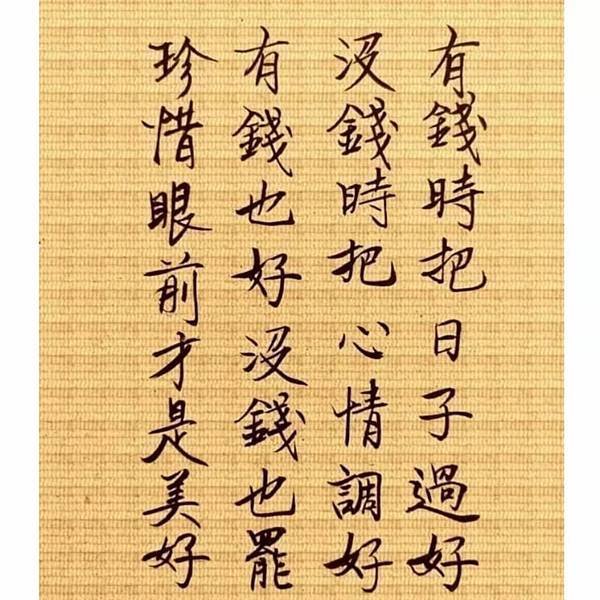 有錢時把日子過好
沒錢時把心情調好
有錢也好沒錢也罷
珍惜眼前才是美好